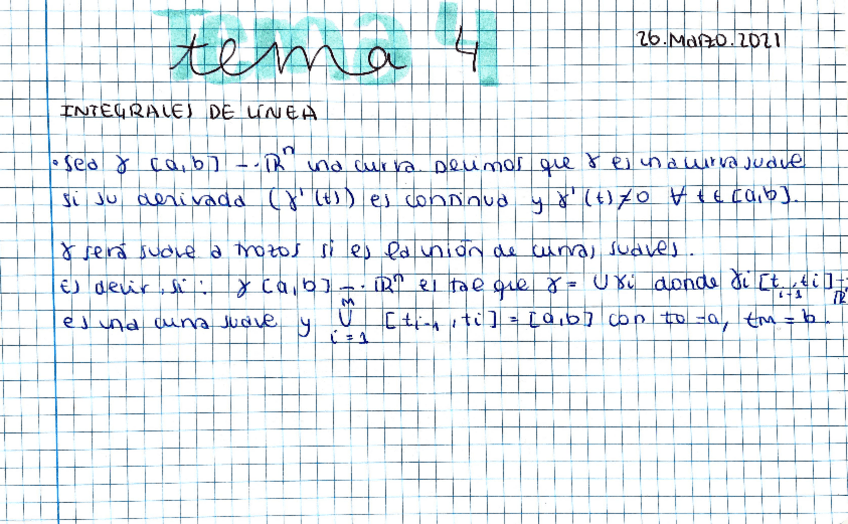 tema 4
26.Marzo.2021
INTEGRALES DE LÍNEA
• Sea γ [a,b] → ℝⁿ una curva. Decimos que γ es una curva suave
si su derivada (γ'(t)) es continua y γ'(t) ≠ 0 ∀ t ∈ [a,b].
γ será suave a trozos si es la unión de curvas suaves.
Es decir, si: γ [a,b] → ℝⁿ es tal que γ = ∪ γi donde γi [t_{i-1}, ti] → ℝⁿ
es una curva suave y ⋃_{i=1}^{m} [t_{i-1}, ti] = [a,b] con to = a, tm = b.